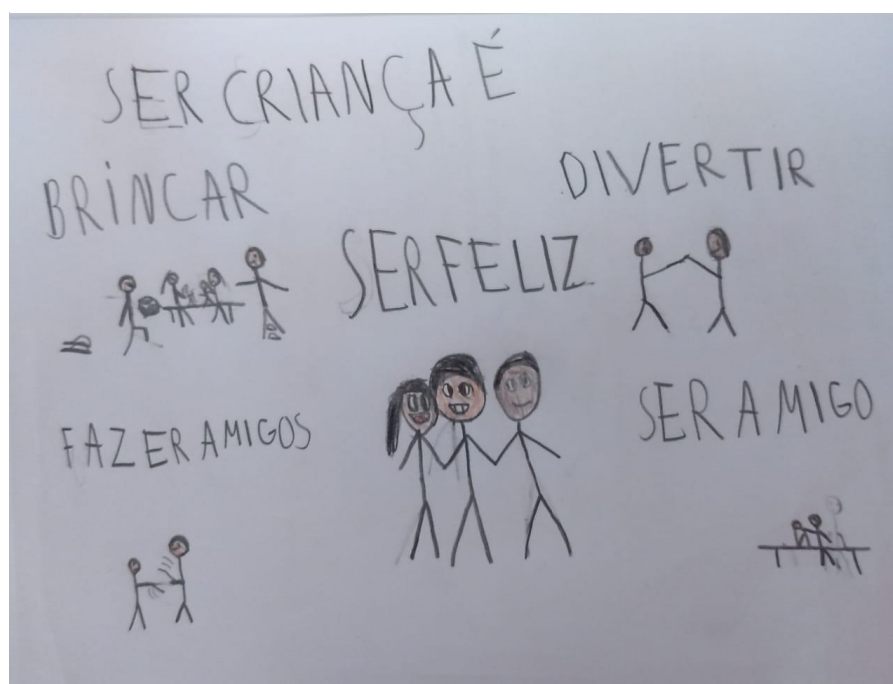 SER CRIANÇA É
BRINCAR
DIVERTIR
SER FELIZ
FAZER AMIGOS
SER AMIGO